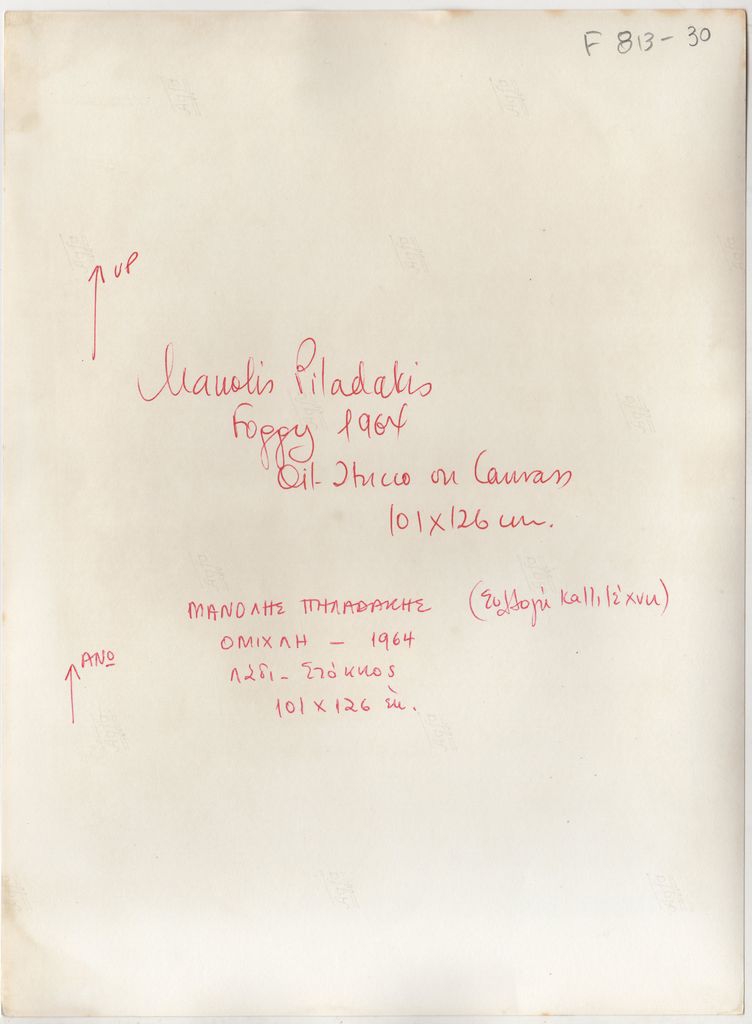 F 813-30
↑ UP
Manolis Piladakis
Foggy 1964
Oil-Stucco on Canvass
101x126 cm.
ΜΑΝΟΛΗΣ ΠΗΛΑΔΑΚΗΣ (Συλλογή Καλλιτέχνη)
ΟΜΙΧΛΗ - 1964
↑ ΑΝΩ
Λάδι - Στόκκος
101 x 126 ἐκ.